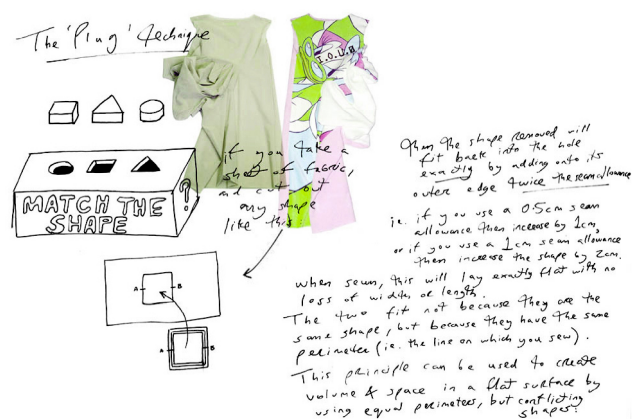 The 'Plug' technique
I.O.U.R
MATCH THE
SHAPE
?
if you take a
sheet of fabric,
and cut out
any shape
like this
A B
A B
then the shape removed will
fit back into the hole
exactly by adding onto its
outer edge twice the seam allowance
i.e. if you use a 0.5cm seam
allowance then increase by 1cm,
or if you use a 1cm seam allowance
then increase the shape by 2cm.
when sewn, this will lay exactly flat with no
loss of width or length.
The two fit not because they are the
same shape, but because they have the same
perimeter (ie. the line on which you sew).
This principle can be used to create
volume & space in a flat surface by
using equal perimeters, but conflicting
shapes.